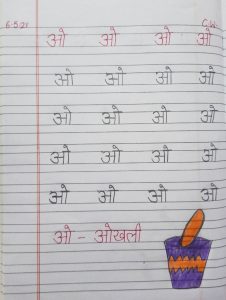 6.5.21 C.W.
ओ ओ ओ ओ
ओ ओ ओ ओ
ओ ओ ओ ओ
ओ ओ ओ ओ
ओ ओ ओ ओ
ओ - ओखली